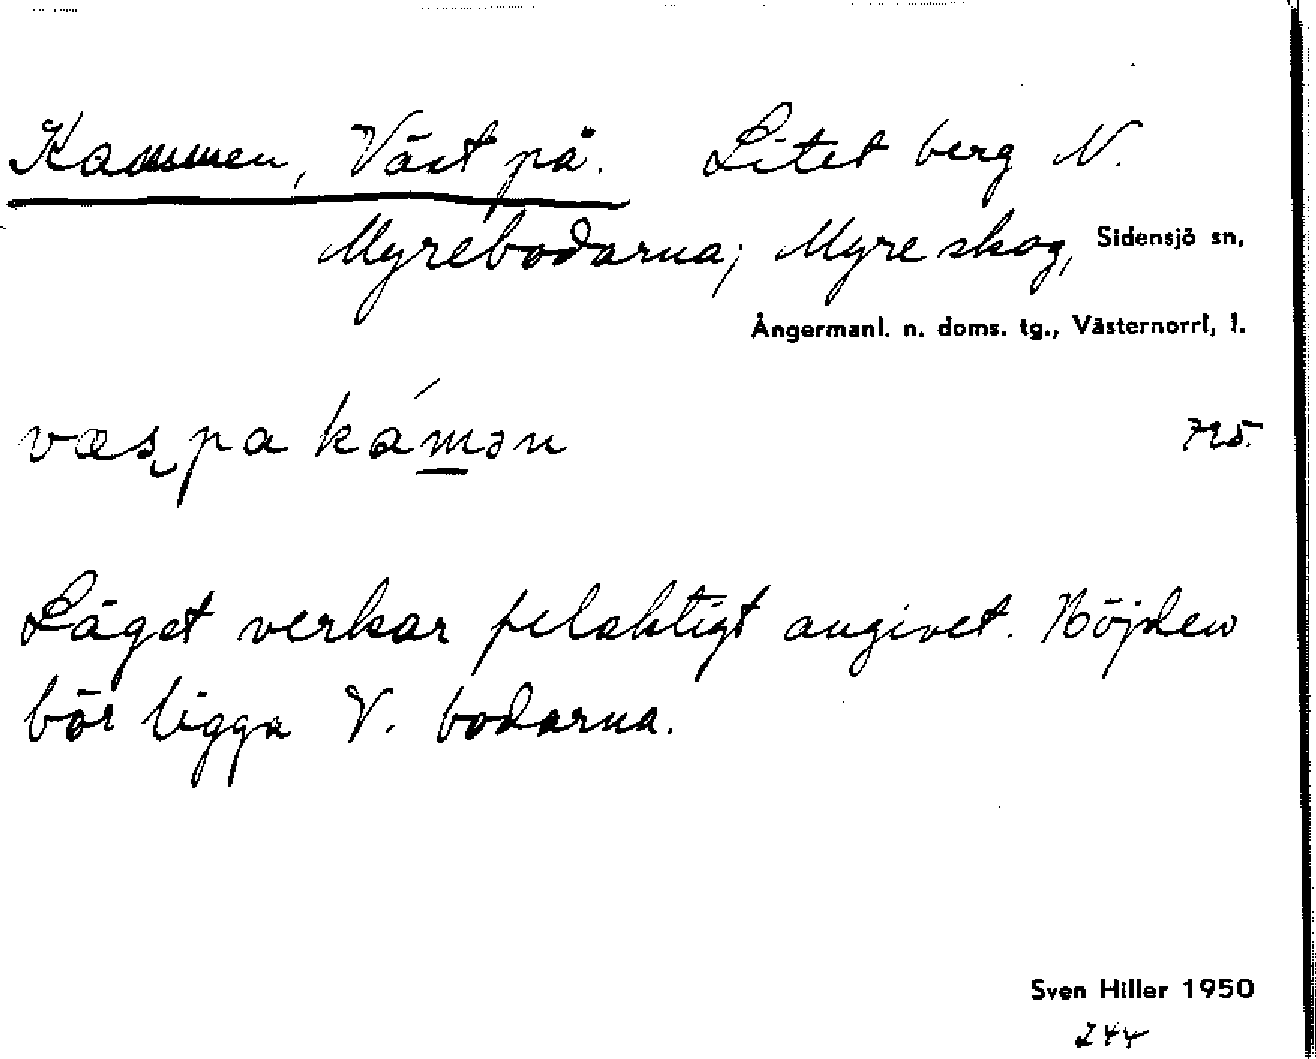 Kammen, Väst på. Litet berg N.
Myrebodarna; Myre skog, Sidensjö sn,
Ångermanl. n. doms. tg., Västernorrl, l.
væs, pa kámən 725.
Läget verkar felaktigt angivet. Höjden
bör ligga V. bodarna.
Sven Hiller 1950
244